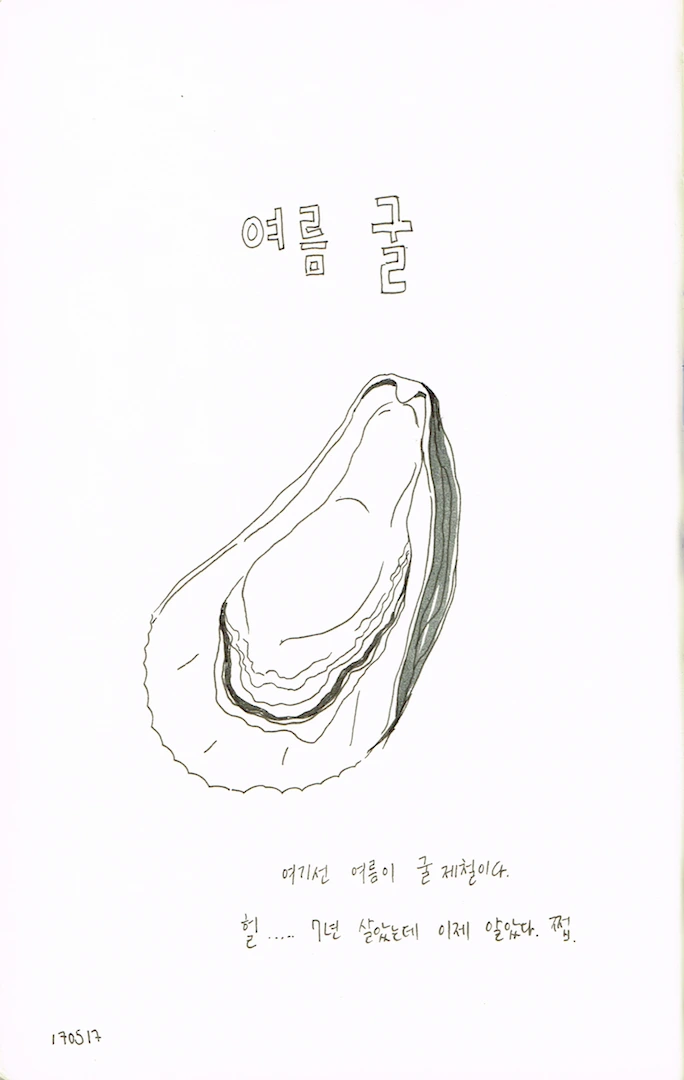 여름 굴
여기선 여름이 굴 제철이다.
헐..... 7년 살았는데 이제 알았다. 쩝.
170517